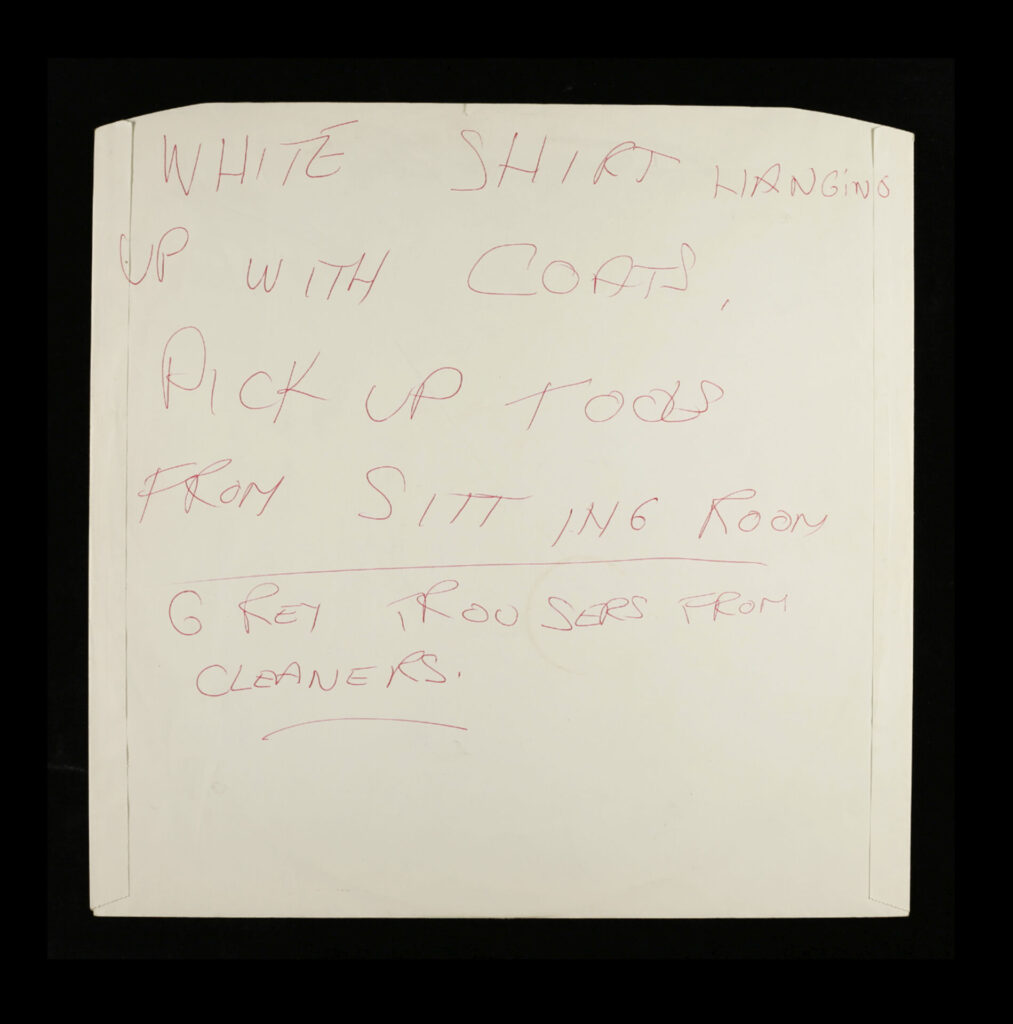 WHITE SHIRT HANGING
UP WITH COATS,
PICK UP TOOLS
FROM SITTING ROOM
GREY TROUSERS FROM
CLEANERS.